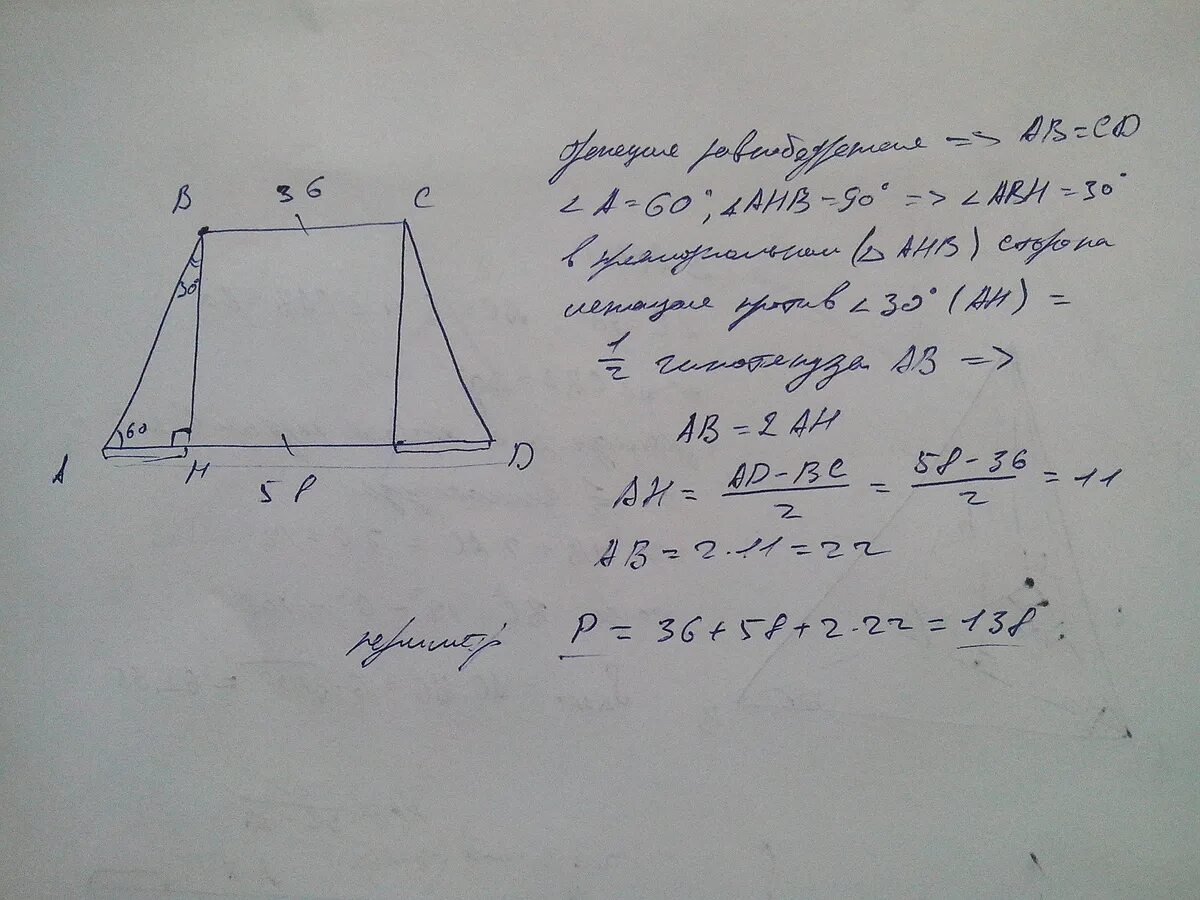 B 36 C
30°
60
A H D
58
Трапеция равнобедренная => AB = CD
∠A = 60°, ∠AHB = 90° => ∠ABH = 30°
в прямоугольном (△ AHB) сторона
лежащая против ∠30° (AH) =
1/2 гипотенуза AB =>
AB = 2 AH
AH = (AD - BC)/2 = (58 - 36)/2 = 11
AB = 2 · 11 = 22
периметр P = 36 + 58 + 2 · 22 = 138